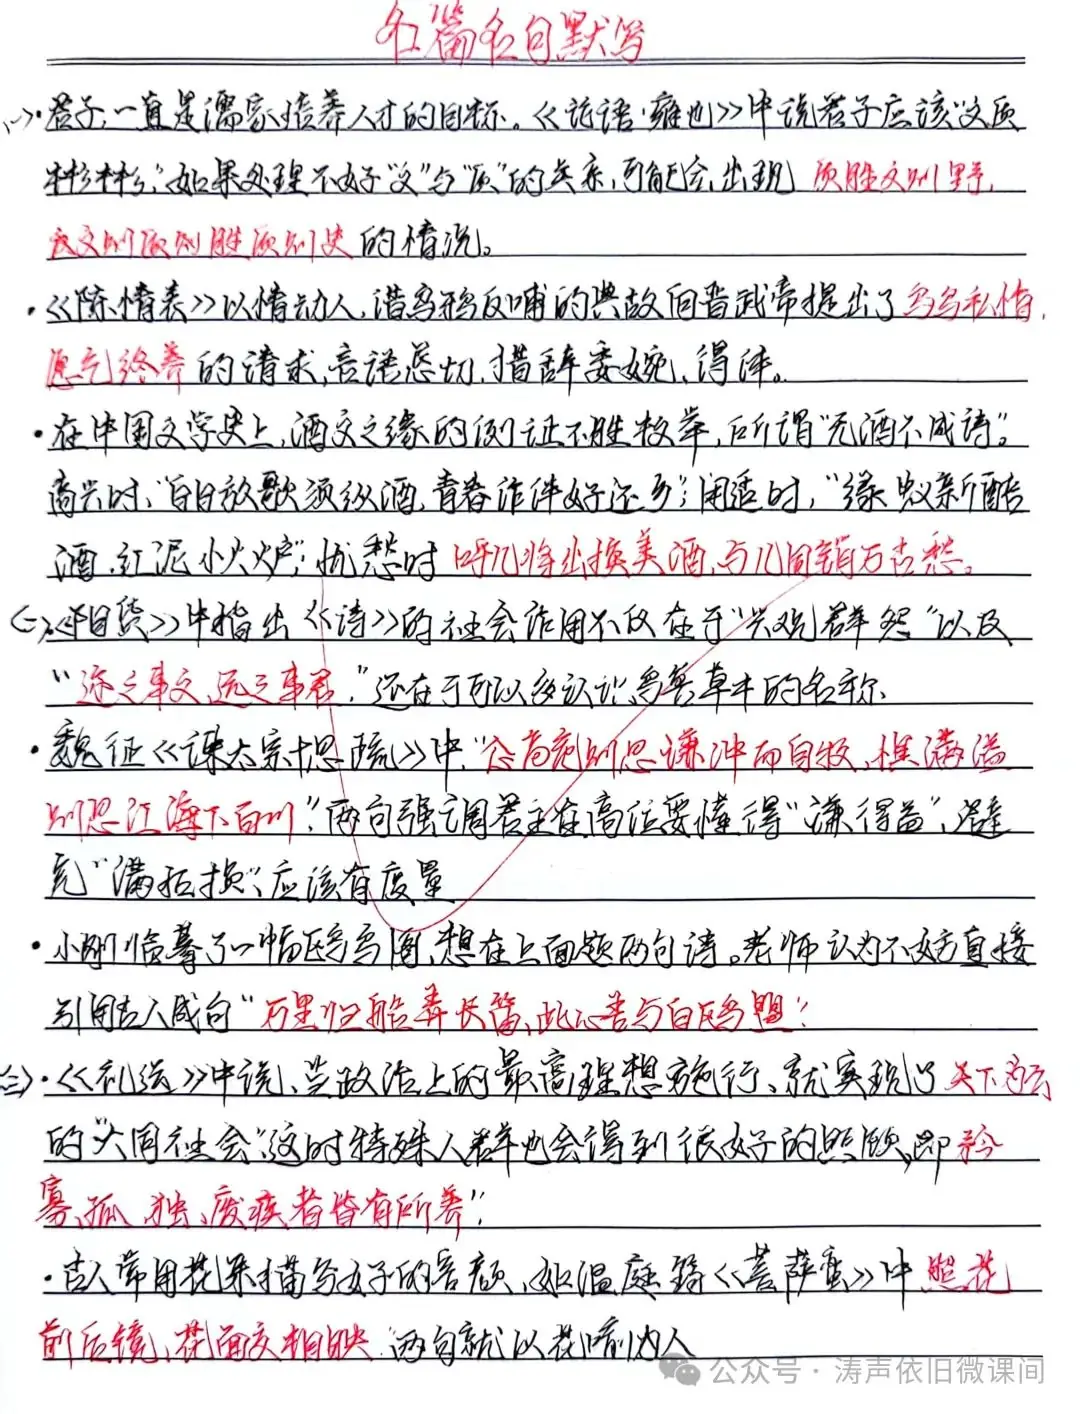 名篇名句默写
(一)·君子,一直是儒家培养人才的目标。《论语·雍也》中说君子应该“文质
彬彬”,如果处理不好“文”与“质”的关系,可能会出现 质胜文则野,
文则质则胜质则史的情况。
·《陈情表》以情动人,借乌鸦反哺的典故向晋武帝提出了乌鸟私情,
愿乞终养的请求,言语恳切,措辞委婉、得体。
·在中国文学史上,酒文之缘的例证不胜枚举,所谓“无酒不成诗”。
高兴时,“白日放歌须纵酒,青春作伴好还乡”;闲适时,“缘蚁新醅
酒,红泥小火炉”;忧愁时 呼儿将出换美酒,与儿同销万古愁。
(二)·《阳货》中指出《诗》的社会作用不仅在于“兴观群怨”以及
“迩之事父,远之事君,”还在于可以多认识鸟兽草木的名称
·魏征《谏太宗十思疏》中,“念高危则思谦冲而自牧,惧满溢
则思江海下百川”,两句强调君主在高位要懂得“谦得益”,避
免“满招损”,应该有度量
·小刚临摹了一幅鸥鸟图,想在上面题两句诗。老师认为不妨直接
引用古人成句“万里归船弄长笛,此心吾与白鸥盟”;
(三)·《礼运》中说,当政治上的最高理想施行,就实现了天下为公
的“大同社会”,这时特殊人群也会得到很好的照顾,即矜
寡、孤、独、废疾者皆有所养”;
·古人常用花来描写女子的容颜,如温庭筠《菩萨蛮》中照花
前后镜,花面交相映 两句就以花喻为人
公众号·涛声依旧微课间